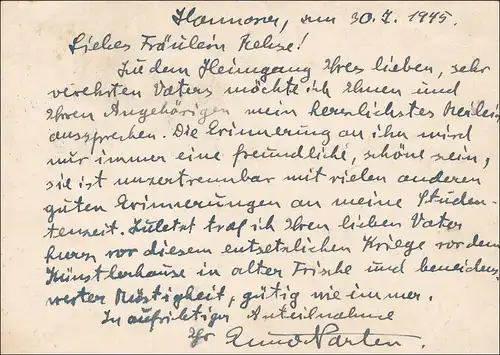 Hannover, am 30.I. 1945.
Liebes Fräulein Rehse!
Zu dem Heimgang Ihres lieben, sehr
verehrten Vaters möchte ich Ihnen und
Ihren Angehörigen mein herzlichstes Beileid
aussprechen. Die Erinnerung an ihn wird
mir immer eine freundliche, schöne sein,
sie ist unzertrennbar mit vielen anderen
guten Erinnerungen an meine Studen-
tenzeit. Zuletzt traf ich Ihren lieben Vater
kurz vor diesem entsetzlichen Kriege vor dem
Künstlerhause in alter Frische und beneidens-
werter Rüstigkeit, gütig wie immer.
In aufrichtiger Anteilnahme
Ihr Narten.